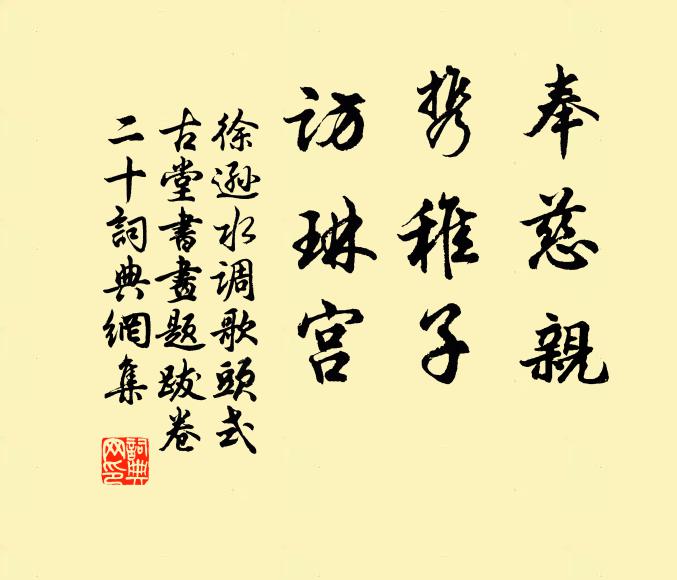 奉慈親
携稚子
訪琳宮
徐逊水调歌頭式
古堂書畫題跋卷
二十詞典網集
詞典
网印